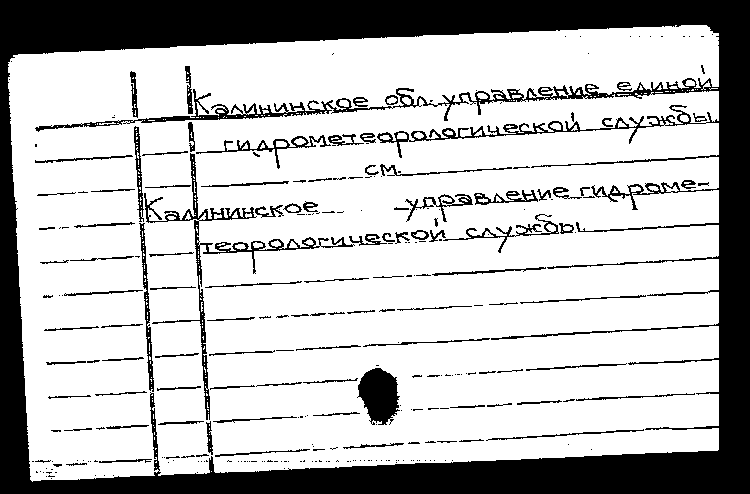 Калининское обл. управление единой
гидрометеорологической службы.
см.
Калининское управление гидроме-
теорологической службы.